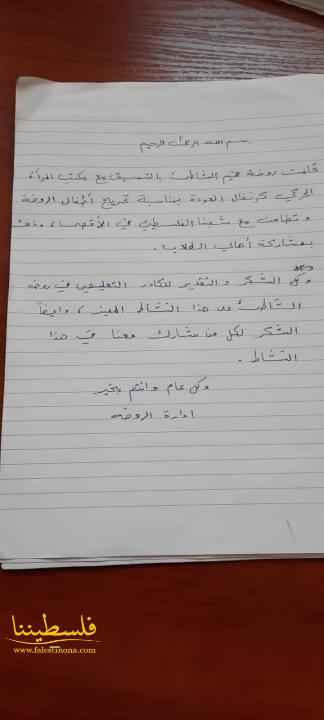 بسم الله الرحمن الرحيم
قامت روضة هيم الشاطئ بالتنسيق مع مكتب المرأة
الحركي كرنفال العودة بمناسبة تخريج أطفال الروضة
و تضامن مع شعبنا الفلسطيني في الأقصى، وذلك
بمشاركة أهالي الطلاب.
وكل الشكر والتقدير للكادر التعليمي في روضة
الشاطئ هذا النشاط المميز، وايضاً
الشكر لكل من شارك معنا في هذا
النشاط.
وكل عام وانتم بخير
ادارة الروضه
١
فلسطيننا
www.falestinona.com